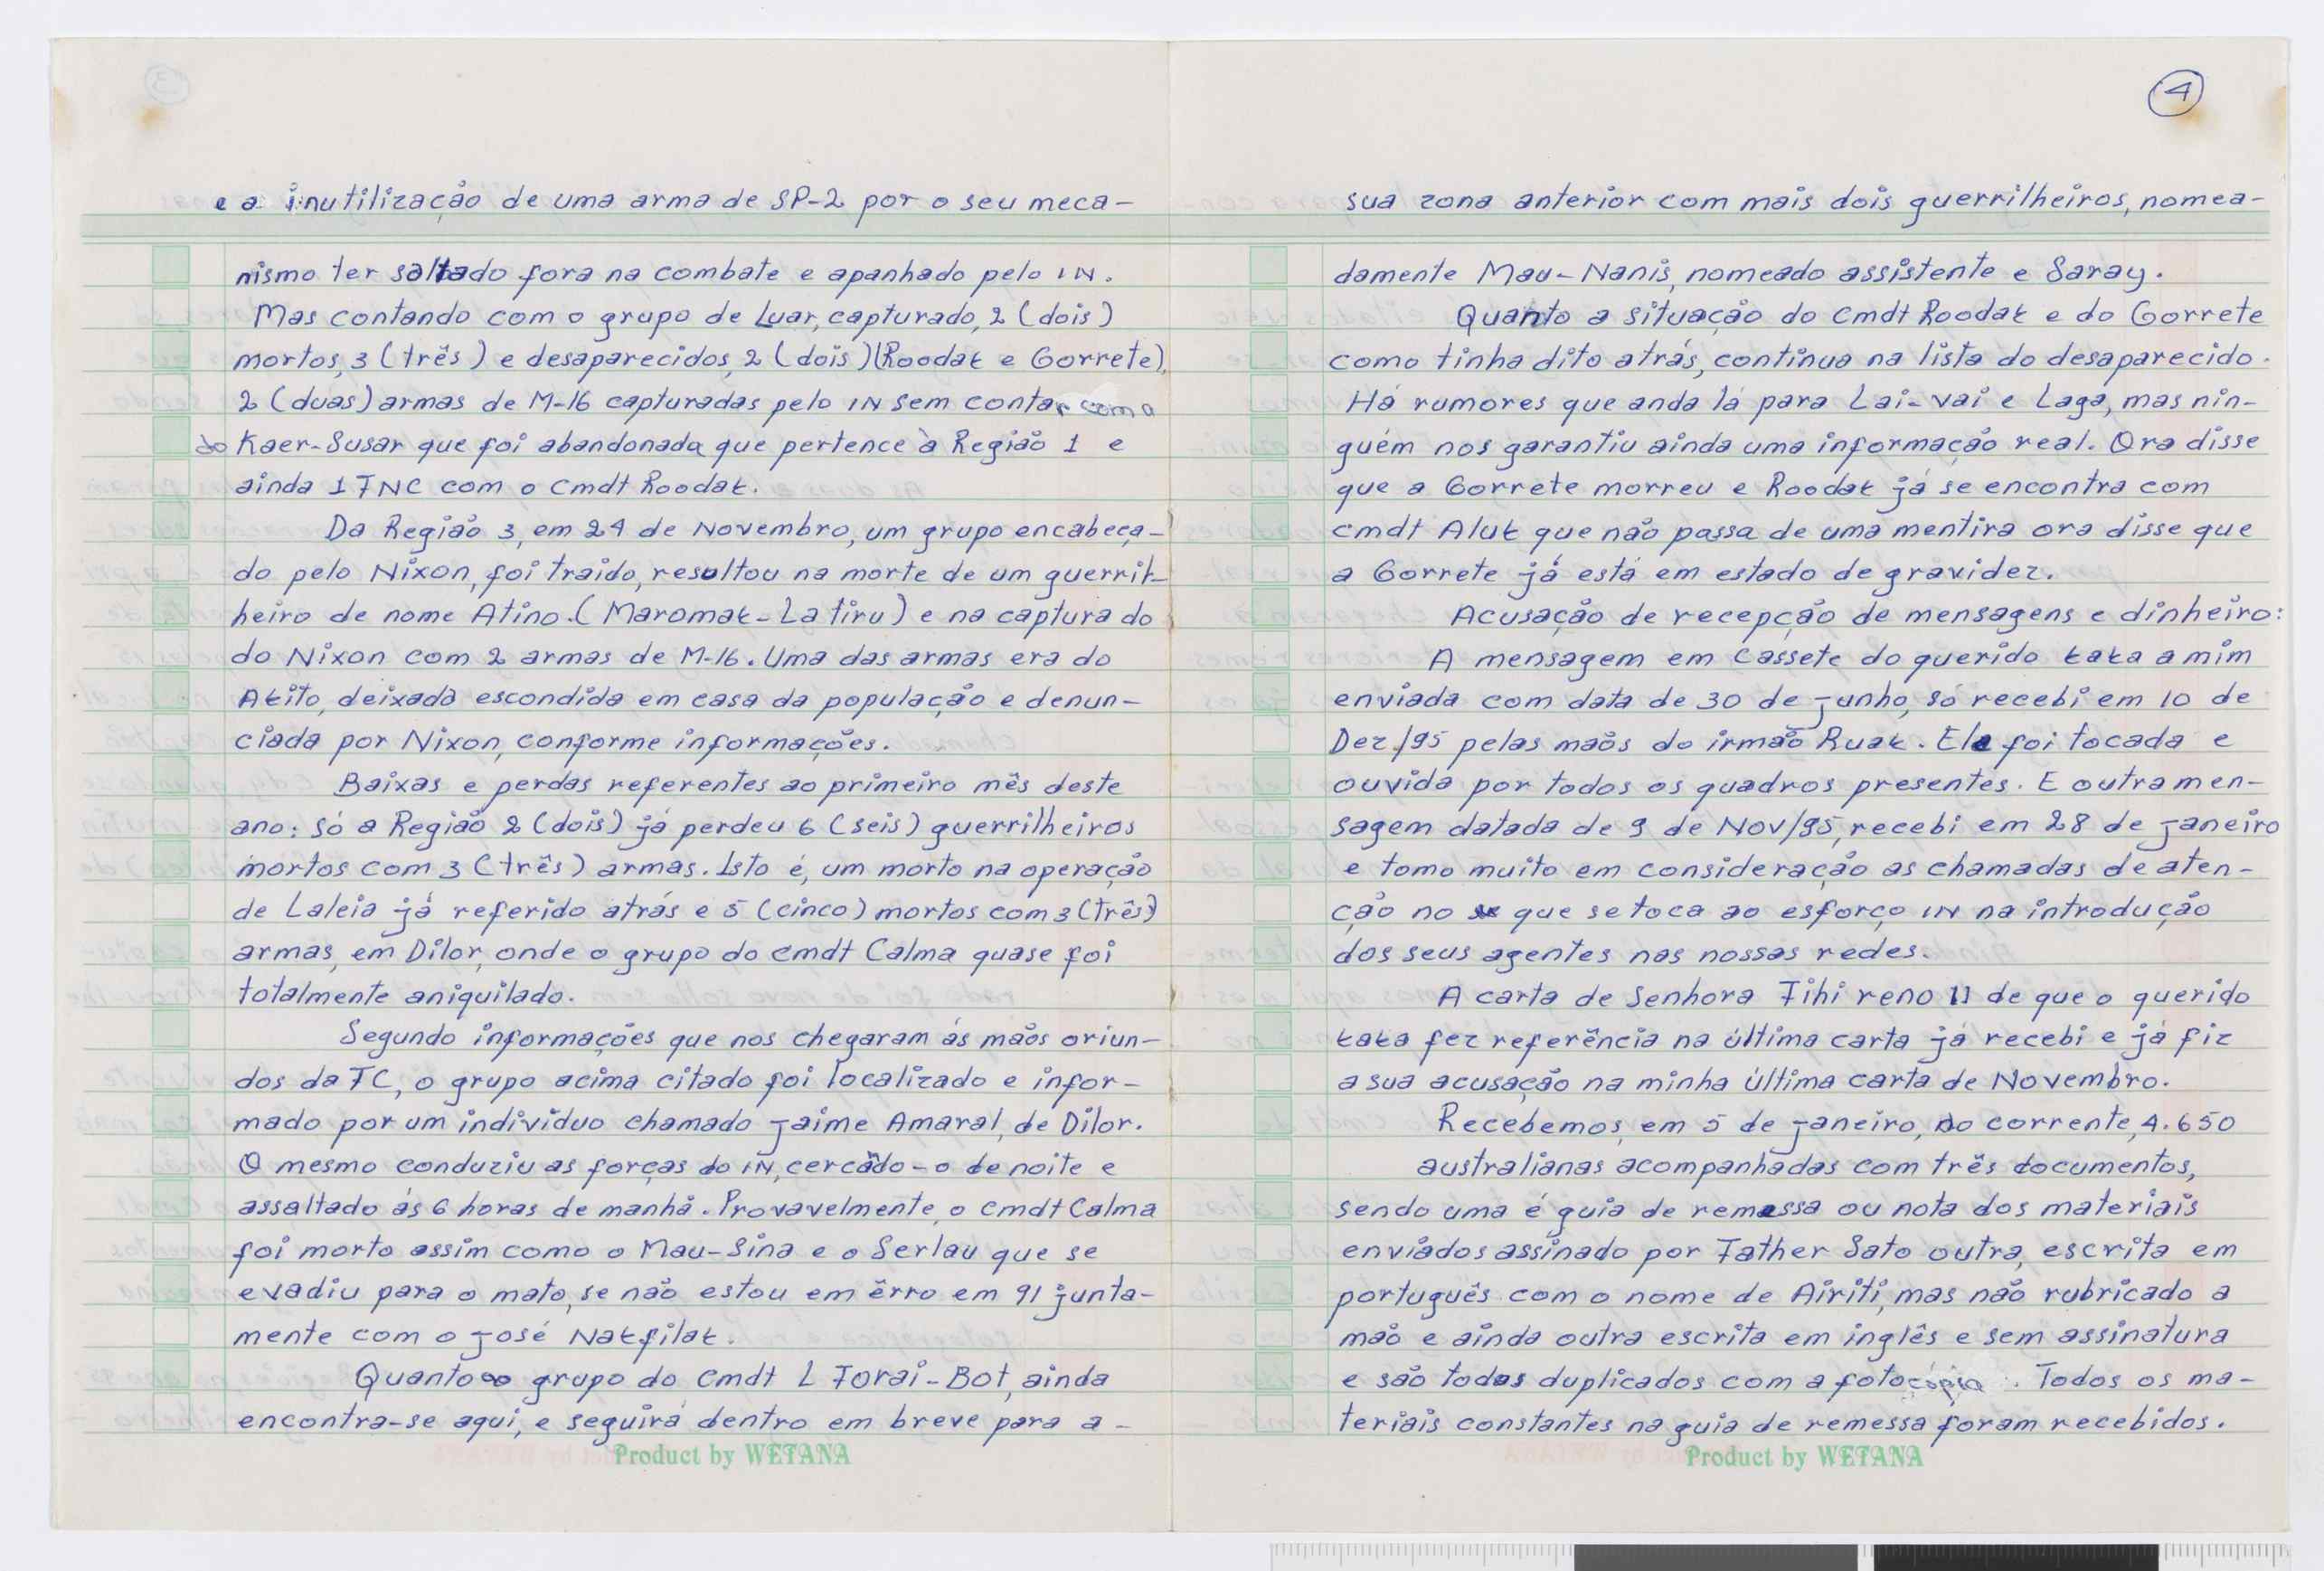 e a inutilização de uma arma de SP-2 por o seu meca-
nismo ter saltado fora na combate e apanhado pelo IN.
Mas contando com o grupo de Luar, capturado, 2 (dois)
mortos, 3 (três) e desaparecidos, 2 (dois) (Roodak e Gorrete),
2 (duas) armas de M-16 capturadas pelo IN sem contar com a
do Kaer-Susar que foi abandonada que pertence à Região 1 e
ainda 1 FNC com o Cmdt Roodak.
Da Região 3, em 24 de Novembro, um grupo encabeça-
do pelo Nixon, foi traido, resultou na morte de um guerril-
heiro de nome Atino. (Maromak-Latiru) e na captura do
do Nixon com 2 armas de M-16. Uma das armas era do
Akito, deixada escondida em casa da população e denun-
ciada por Nixon, conforme informações.
Baixas e perdas referentes ao primeiro mês deste
ano: só a Região 2 (dois) já perdeu 6 (seis) guerrilheiros
mortos com 3 (três) armas. Isto é, um morto na operação
de Laleia já referido atrás e 5 (cinco) mortos com 3 (três)
armas, em Dilor, onde o grupo do Cmdt Calma quase foi
totalmente aniquilado.
Segundo informações que nos chegaram ás maõs oriun-
dos da FC, o grupo acima citado foi localizado e infor-
mado por um individuo chamado Jaime Amaral, de Dilor.
O mesmo conduziu as forças do IN, cercãdo-o de noite e
assaltado ás 6 horas de manhã. Provavelmente, o Cmdt Calma
foi morto assim como o Mau-Sina e o Serlau que se
evadiu para o mato, se não estou em êrro em 91 junta-
mente com o José Nakfilak.
Quanto ao grupo do Cmdt L Forai-Bot, ainda
encontra-se aqui, e seguirá dentro em breve para a-
Product by WETANA
4
sua zona anterior com mais dois guerrilheiros, nomea-
damente Mau-Nanis, nomeado assistente e Saray.
Quanto a situação do Cmdt Roodak e do Gorrete
como tinha dito atrás, continua na lista do desaparecido.
Há rumores que anda lá para Lai-vai e Laga, mas nin-
guém nos garantiu ainda uma informação real. Ora disse
que a Gorrete morreu e Roodak já se encontra com
cmdt Aluk que não passa de uma mentira ora disse que
a Gorrete já está em estado de gravidez.
Acusação de recepção de mensagens e dinheiro:
A mensagem em cassete do querido kaka a mim
enviada com data de 30 de junho, só recebi em 10 de
Dez./95 pelas maõs do irmaõ Ruak. Ela foi tocada e
ouvida por todos os quadros presentes. E outra men-
sagem datada de 9 de Nov/95, recebi em 28 de janeiro
e tomo muito em consideração as chamadas de aten-
ção no que se toca ao esforço IN na introdução
dos seus agentes nas nossas redes.
A carta de Senhora Fihi reno 11 de que o querido
kaka fez referência na última carta já recebi e já fiz
a sua acusação na minha última carta de Novembro.
Recebemos, em 5 de janeiro, do corrente, 4.650
australianas acompanhadas com três documentos,
sendo uma é guia de remessa ou nota dos materiais
enviados assinado por Father Sato outra, escrita em
português com o nome de Airiti, mas não rubricado a
maõ e ainda outra escrita em inglês e sem assinatura
e são todos duplicados com a fotocópia. Todos os ma-
teriais constantes na guia de remessa foram recebidos.
Product by WETANA